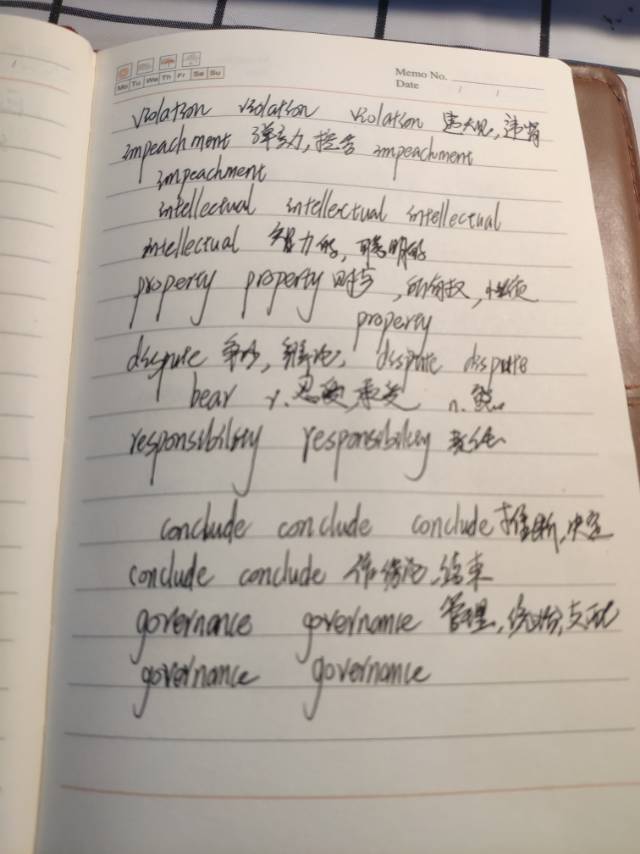 Mo Tu We Th Fr Sa Su
Memo No.
Date / /
violation violation violation 违规,违背
impeachment 弹劾,控告 impeachment
impeachment
intellectual intellectual intellectual
intellectual 智力的,聪明的
property property 财产,所有权,性质
property
dispute 争吵,辩论, dispute dispute
bear v.忍受,承受 n.熊
responsibility responsibility 责任
conclude conclude conclude 推断,决定
conclude conclude 作结论,结束
governance governance 管理,统治,支配
governance governance